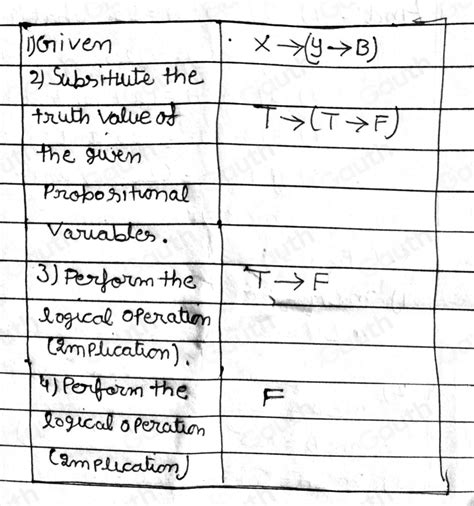 1) Given
X → (y → B)
2) Substitute the
truth value of
T → (T → F)
the given
Propositional
Variables.
3) Perform the
T → F
logical operation
(Implication).
4) Perform the
F
logical operation
(Implication)